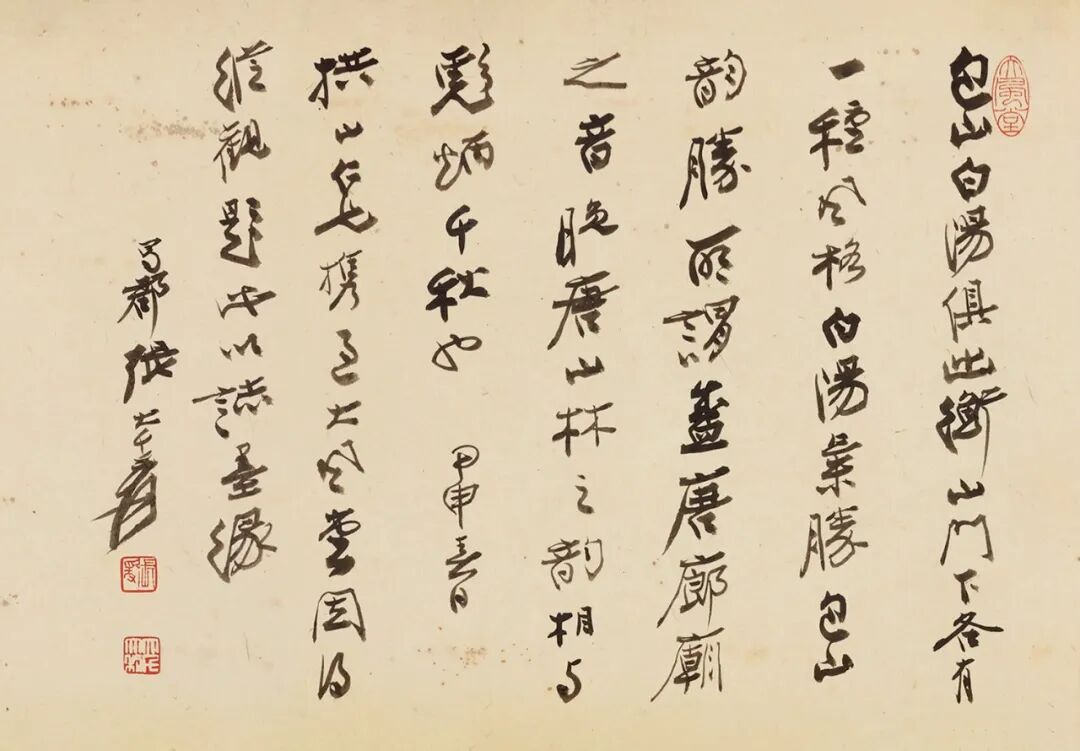 大風堂
包山白陽俱出衡山門下各有
一種風格白陽氣勝包山
韵勝所謂盛唐廊廟
之音晚唐山林之韵相与
彪炳千秋也 甲申春日
拱山仁兄携過大風堂因得
縱觀題此以誌墨緣
蜀郡張大千爰
張爰